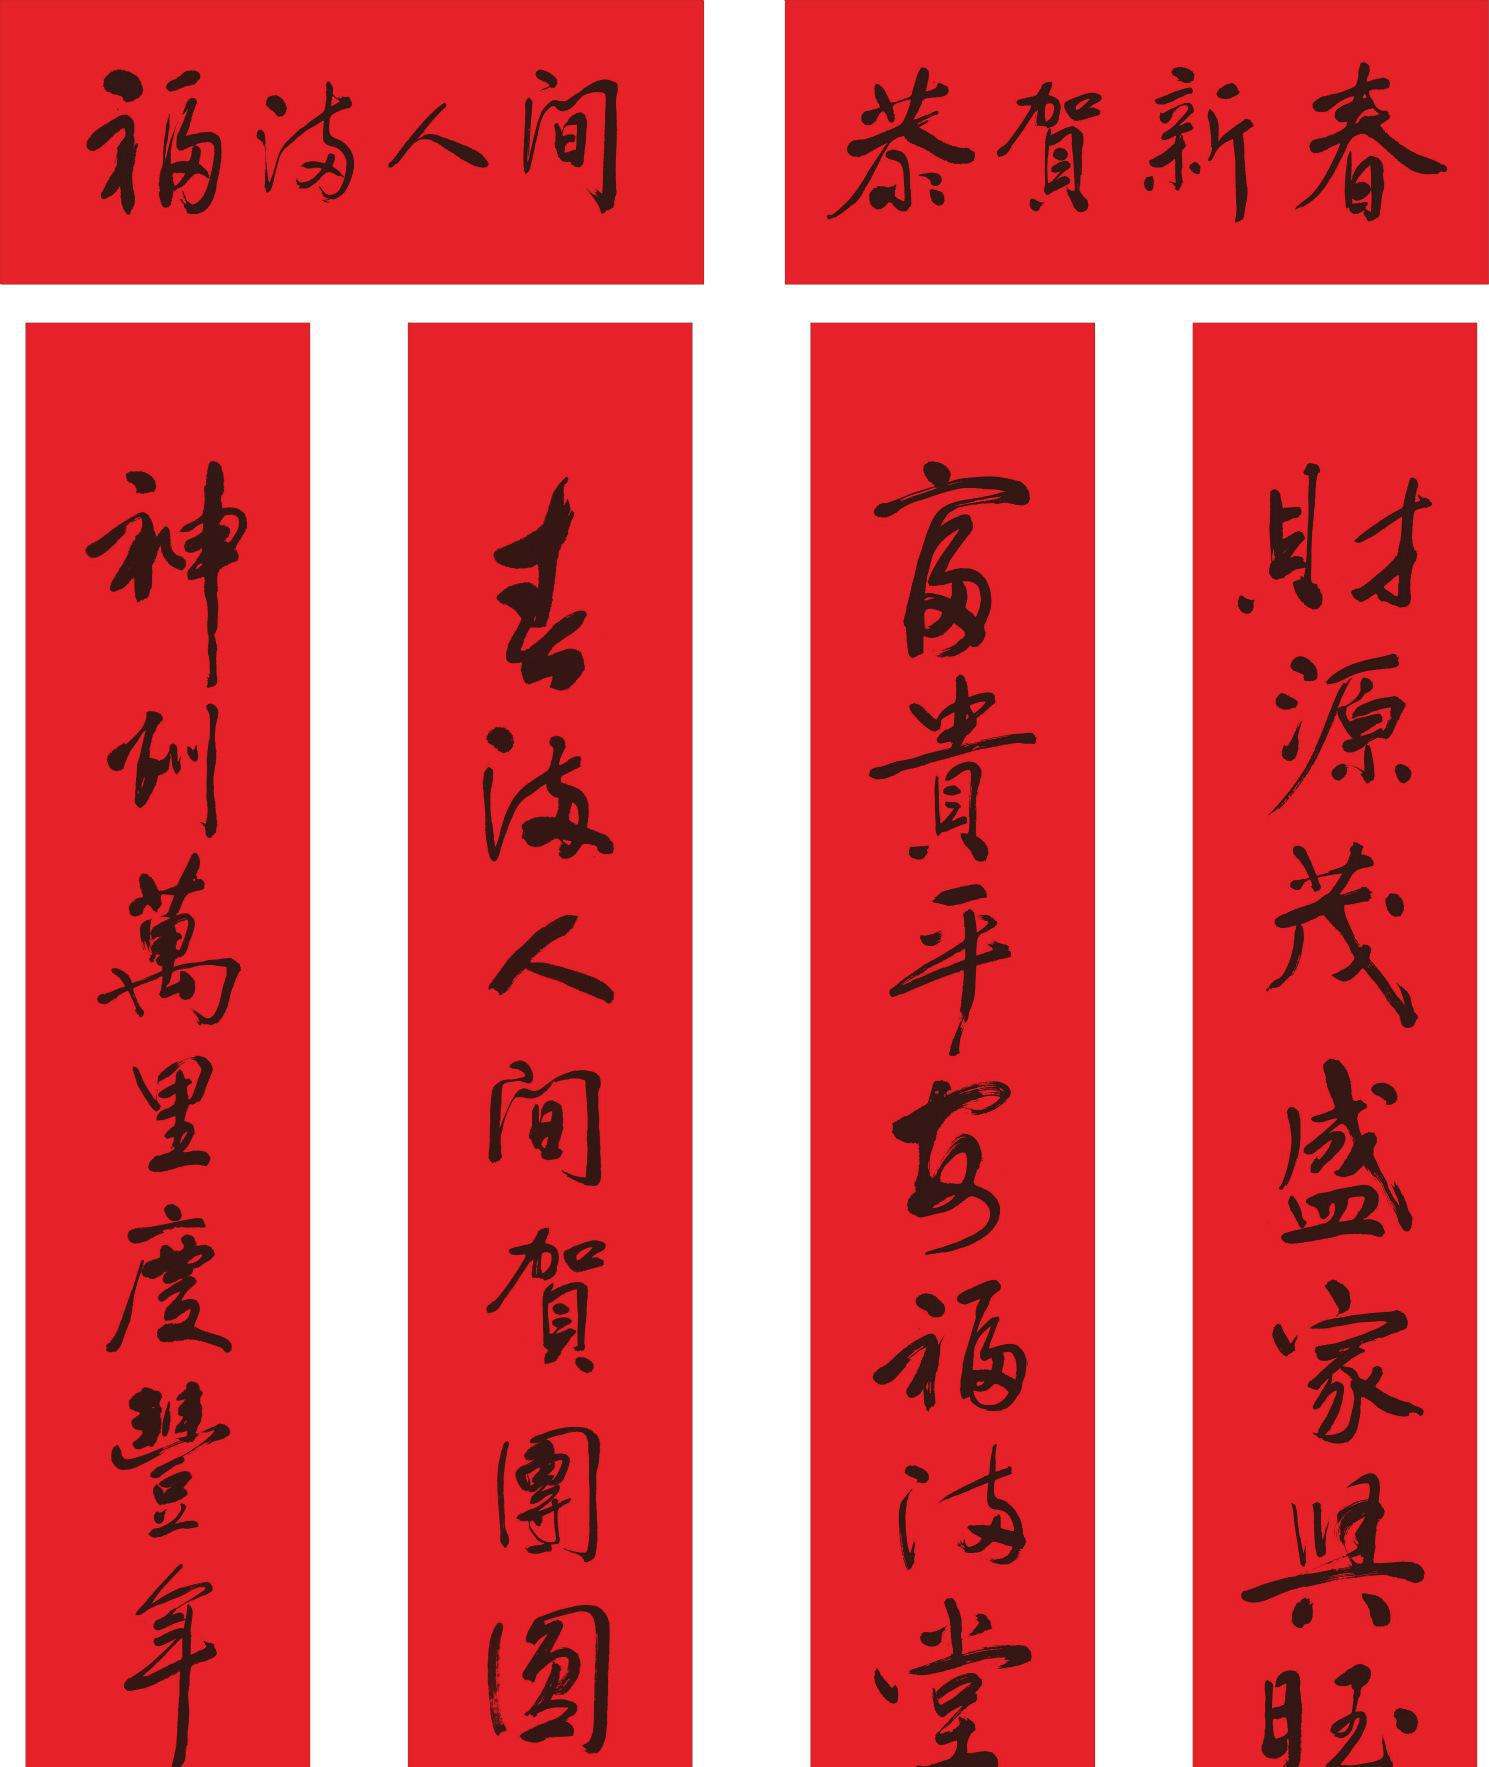 福满人间
恭賀新春
神州萬里慶豐年
春满人间賀團圆
富貴平安福满堂
財源茂盛家興旺